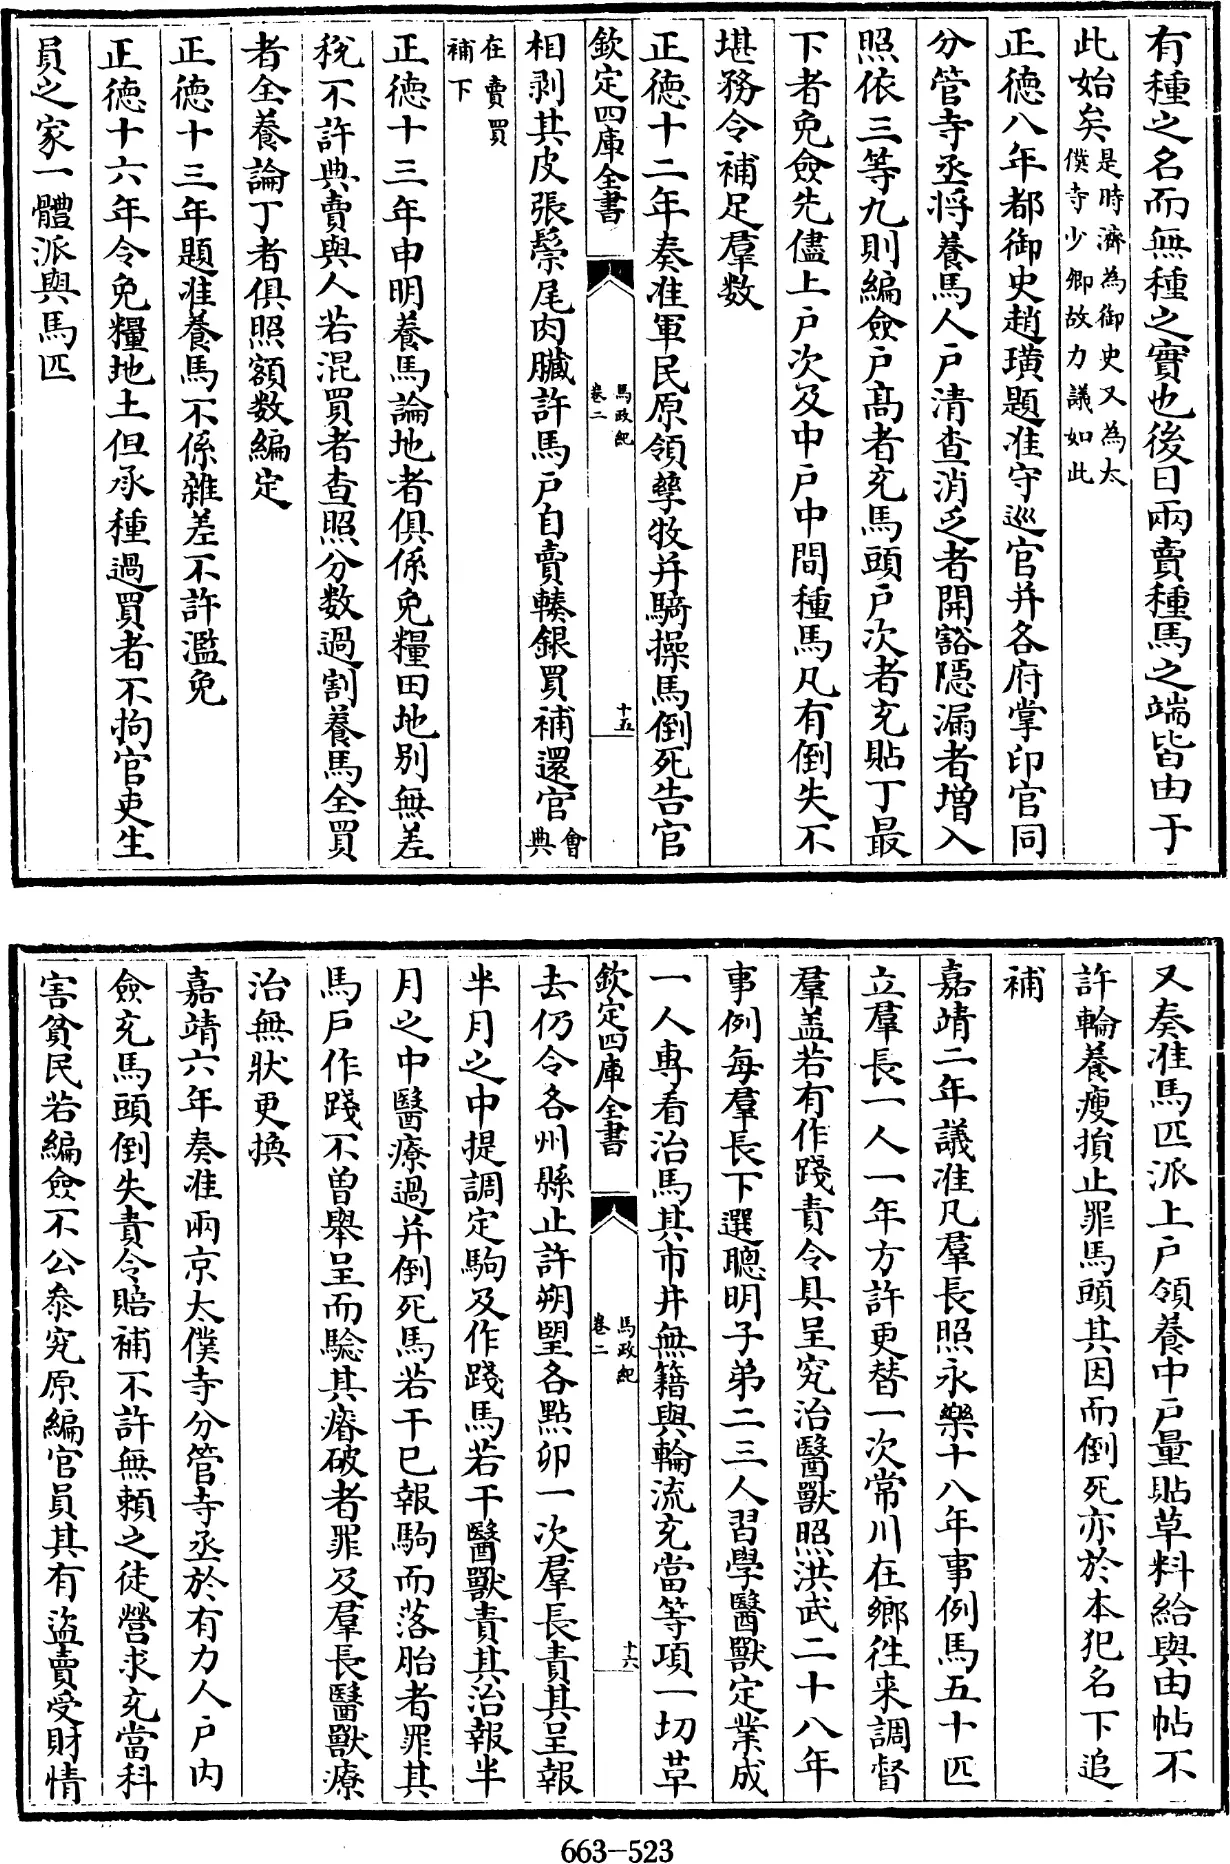 有種之名而無種之實也後日兩賣種馬之端皆由于
此始矣是時濟為御史又為太僕寺少卿故力議如此
正德八年都御史趙璜題准守巡官并各府掌印官同
分管寺丞將養馬人戶清查消乏者開豁隠漏者增入
照依三等九則編僉戶髙者充馬頭戶次者充貼丁最
下者免僉先儘上戶次及中戶中間種馬凡有倒失不
堪務令補足羣數
正德十二年奏准軍民原領孳牧并騎操馬倒死告官
欽定四庫全書
馬政紀
卷二
十五
相剥其皮張鬃尾肉臟許馬戶自賣輳銀買補還官會典
在賣買補下
正德十三年申明養馬論地者俱係免糧田地别無差
稅不許典賣與人若混買者查照分數過割養馬全買
者全養論丁者俱照額數編定
正德十三年題准養馬不係雜差不許濫免
正德十六年令免糧地土但承種過買者不拘官吏生
員之家一體派與馬匹
又奏准馬匹派上戶領養中戶量貼草料給與由帖不
許輪養瘦損止罪馬頭其因而倒死亦於本犯名下追
補
嘉靖二年議准凡羣長照永樂十八年事例馬五十匹
立羣長一人一年方許更替一次常川在鄉徃来調督
羣盖若有作踐責令具呈究治醫獸照洪武二十八年
事例每羣長下選聰明子弟二三人習學醫獸定業成
一人專看治馬其市井無籍與輪流充當等項一切草
欽定四庫全書
馬政紀
卷二
十六
去仍令各州縣止許朔望各點卯一次羣長責其呈報
半月之中提調定駒及作踐馬若干醫獸責其治報半
月之中醫療過并倒死馬若干已報駒而落胎者罪其
馬戶作踐不曾舉呈而驗其瘡破者罪及羣長醫獸療
治無狀更換
嘉靖六年奏准兩京太僕寺分管寺丞於有力人戶内
僉充馬頭倒失責令賠補不許無賴之徒營求充當科
害貧民若編僉不公叅究原編官員其有盜賣受財情
663-523